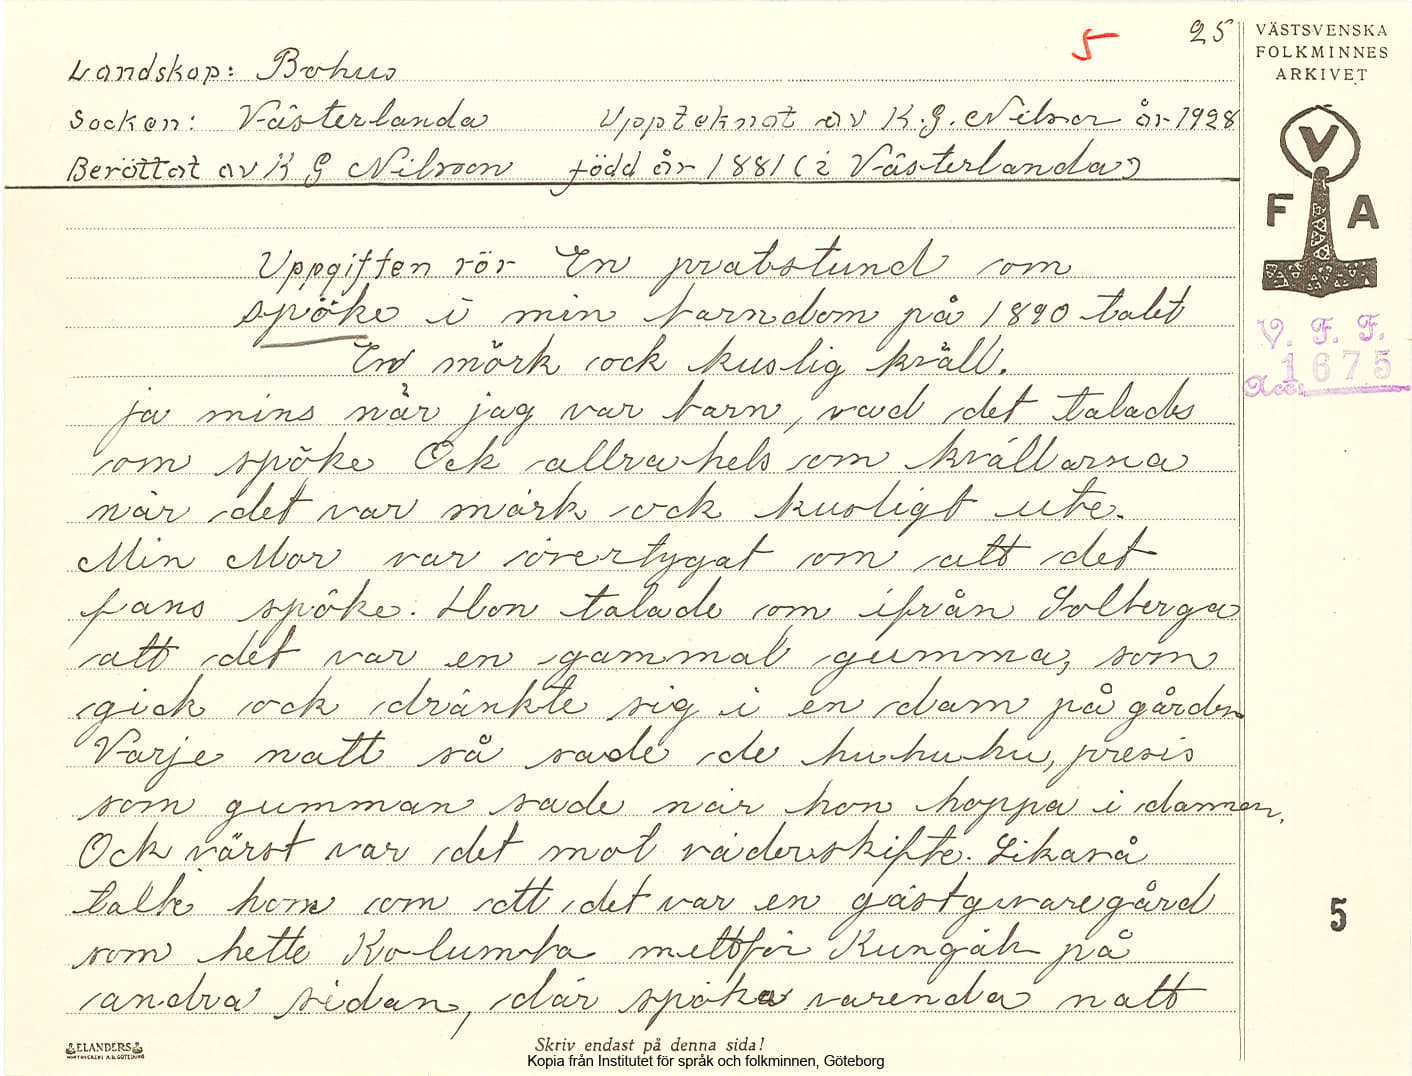 25
5
VÄSTSVENSKA
FOLKMINNES
ARKIVET
Landskap: Bohus
Socken: Västerlanda Upptecknat av K.G. Nilson år 1928
Berättat av K G Nilsson född år 1881 (i Västerlanda)
V
F A
V. F. F.
Acc. 1675
Uppgiften rör En pratstund om
spöke i min barndom på 1890 talet
En mörk ock kuslig kväll.
ja mins när jag var barn, vad det talades
om spöke Ock allra hels om kvällarna
när det var mörk ock kusligt ute.
Min Mor var övertygat om att det
fans spöke. Hon talade om ifrån Solberga
att det var en gammal gumma, som
gick ock dränkte sig i en dam på gården
Varje natt så sade de hu hu hu, presis
som gumman sade när hon hoppa i dammen.
Ock värst var det mot väderskifte. Likaså
talte hon om att det var en gästgivaregård
som hette Kolumba mittför Kungälv på
andra sidan, där spöka varenda natt
5
ELANDERS
Skriv endast på denna sida!
Kopia från Institutet för språk och folkminnen, Göteborg